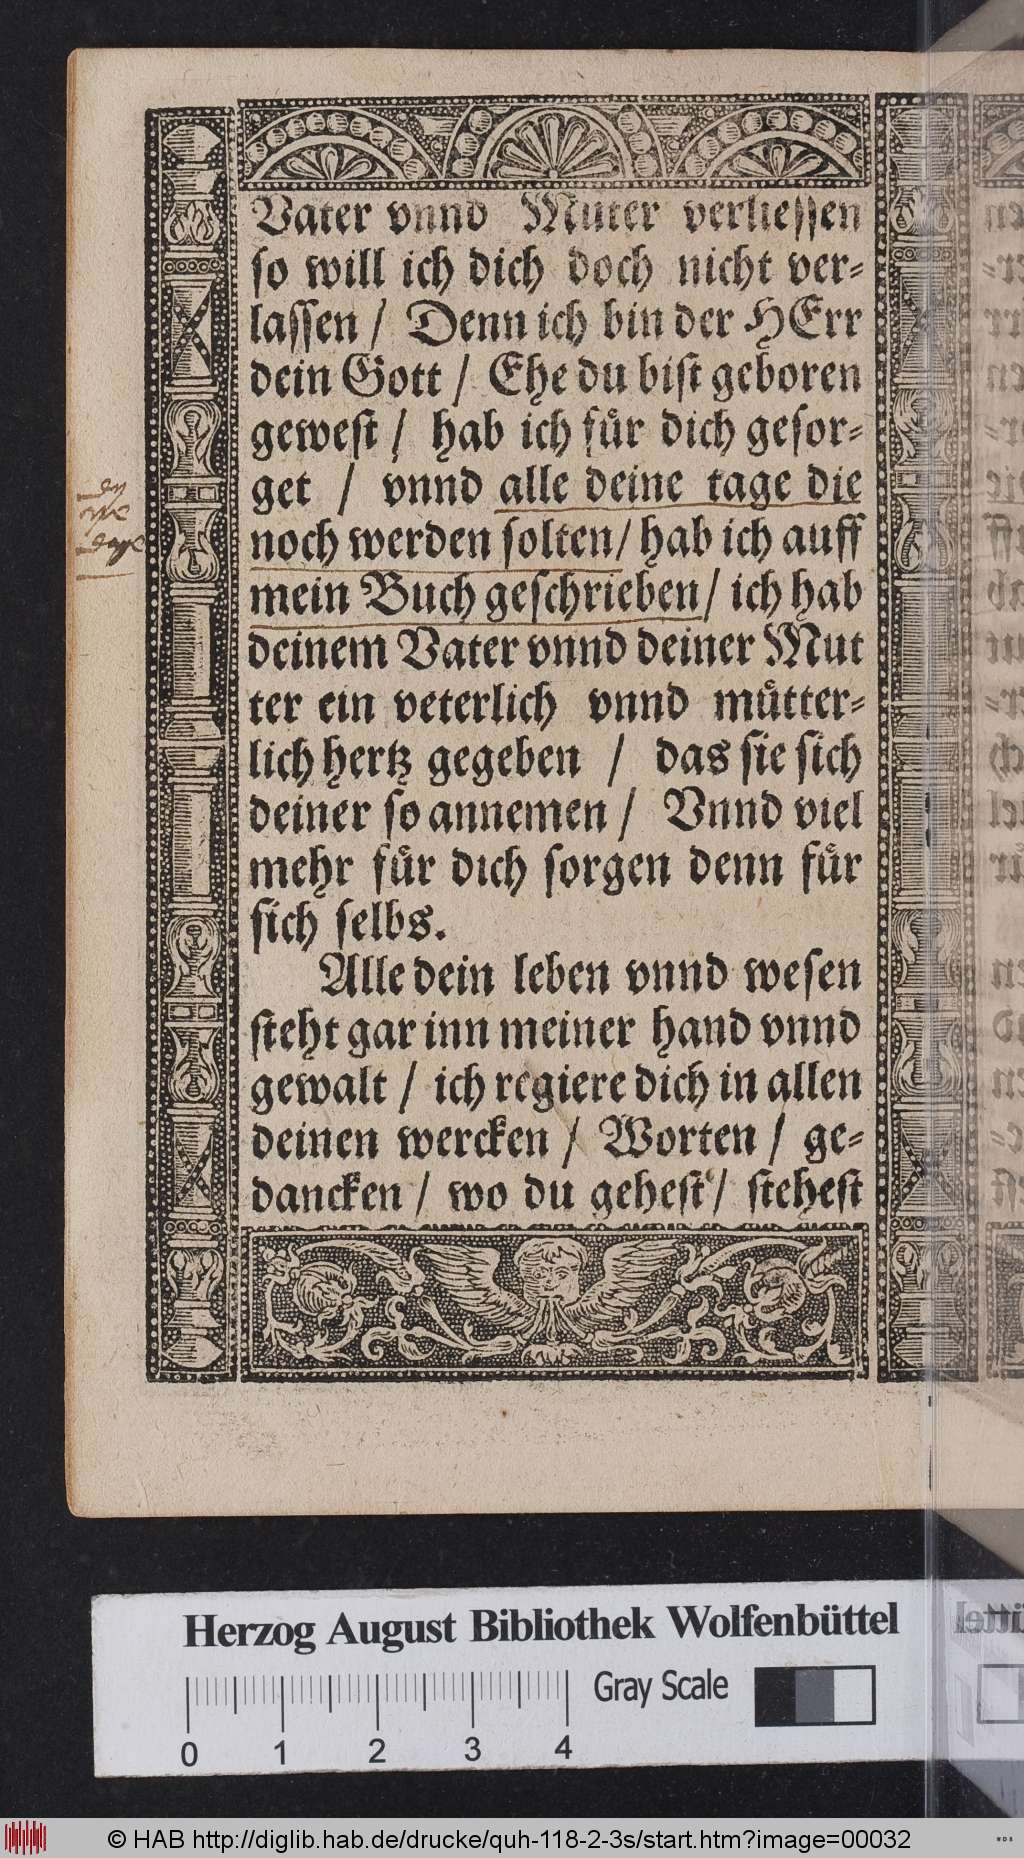 Vater vnnd Muter verliessen
so will ich dich doch nicht ver-
lassen / Denn ich bin der HErr
dein Gott / Ehe du bist geboren
gewest / hab ich fuͤr dich gesor-
get / vnnd alle deine tage die
noch werden solten / hab ich auff
mein Buch geschrieben / ich hab
deinem Vater vnnd deiner Mut
ter ein veterlich vnnd muͤtter-
lich hertz gegeben / das sie sich
deiner so annemen / Vnnd viel
mehr fuͤr dich sorgen denn fuͤr
sich selbs.
Alle dein leben vnnd wesen
steht gar inn meiner hand vnnd
gewalt / ich regiere dich in allen
deinen wercken / Worten / ge-
dancken / wo du gehest / stehest
Herzog August Bibliothek Wolfenbüttel
Gray Scale
0 1 2 3 4
© HAB http://diglib.hab.de/drucke/quh-118-2-3s/start.htm?image=00032